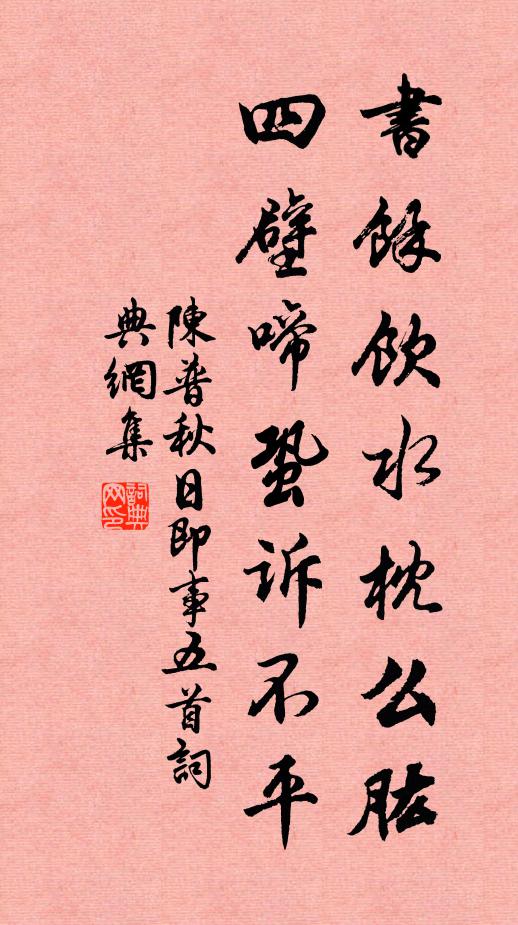 書餘飲水枕么肱
四壁啼蛩訴不平
陳普秋日即事五首詞
典網集
詞典
网印